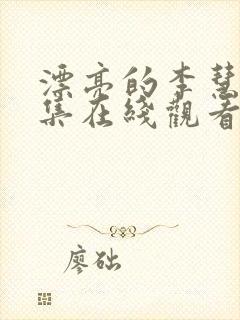 漂亮的李慧
集在綫觀看
廖础